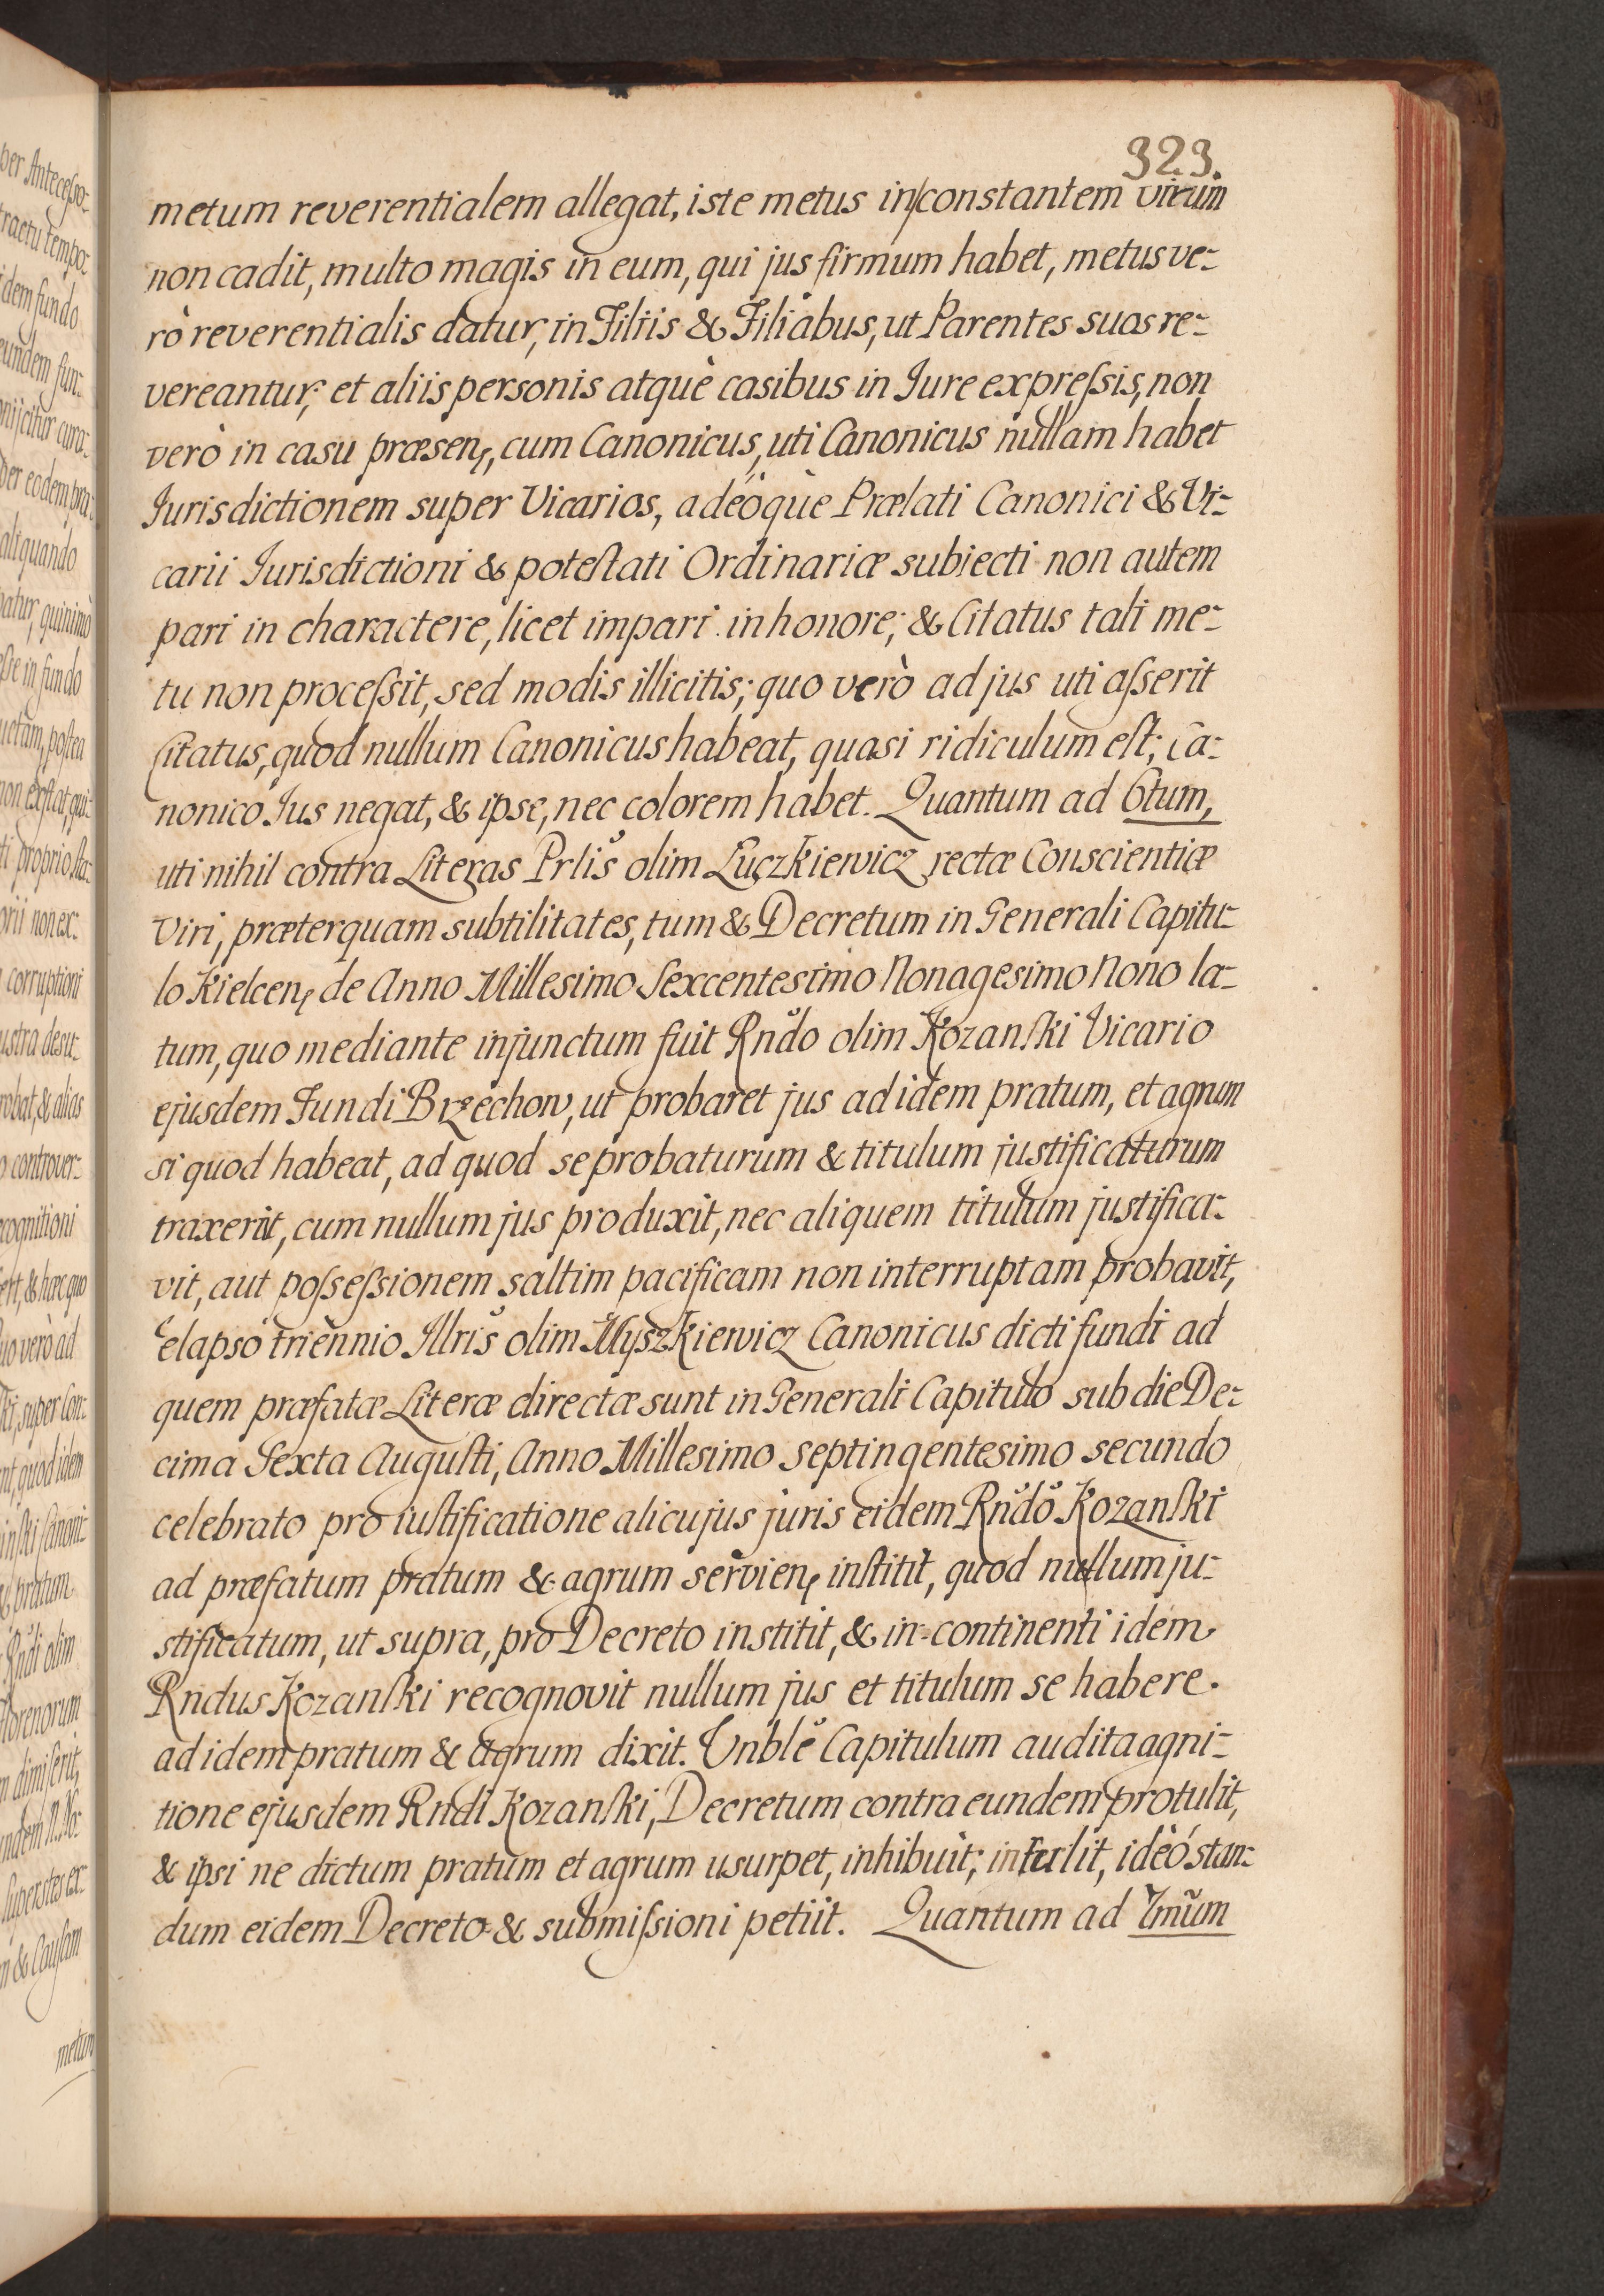 323.
metum reverentialem allegat, iste metus in/constantem virum
non cadit, multo magis in eum, qui jus firmum habet, metus ve-
rò reverentialis datur, in Filiis & Filiabus, ut Parentes suos re-
vereantur, et aliis personis atquè casibus in Jure expreſsis, non
verò in casu præsen, cum Canonicus, uti Canonicus nullam habet
Jurisdictionem super Vicarios, adeòquè Prælati Canonici & Vi-
carii Jurisdictioni & poteſtati Ordinariæ subiecti non autem
pari in charactere, licet impari in honore; & Citatus tali me-
tu non proceſsit, sed modis illicitis; quo verò ad jus uti aſserit
Citatus, quod nullum Canonicus habeat, quasi ridiculum eſt; Ca-
nonico Jus negat, & ipse, nec colorem habet. Quantum ad 6tum,
uti nihil contra Literas Prlis olim Luczkiewicz rectæ Conscientiæ
Viri, præterquam subtilitates, tum & Decretum in Generali Capitu-
lo Kielcen, de Anno Millesimo Sexcentesimo Nonagesimo Nono la-
tum, quo mediante injunctum fuit Rndo olim Kozanſki Vicario
ejusdem Fundi Brzechow, ut probaret jus ad idem pratum, et agrum
si quod habeat, ad quod se probaturum & titulum justificaturum
traxerit, cum nullum jus produxit, nec aliquem titulum justifica-
vit, aut poſseſsionem saltim pacificam non interruptam probavit,
elapso triennio Illris olim Myszkiewicz Canonicus dicti fundi ad
quem præfatæ Literæ directæ sunt in Generali Capitulo sub die De-
cima Sexta Auguſti, Anno Millesimo Septingentesimo secundo
celebrato pro iuſtificatione alicujus juris eidem Rndo Kozanſki
ad præfatum pratum & agrum servien, inſtitit, quod nullum ju-
stificatum, ut supra, pro Decreto institit, & in-continenti idem
Rndus Kozanſki recognovit nullum jus et titulum se habere.
ad idem pratum & agrum dixit. Vnble Capitulum audita agni-
tione ejusdem Rndi Kozanſki, Decretum contra eundem protulit,
& ipsi ne dictum pratum et agrum usurpet, inhibuit; ideò stan-
dum eidem Decreto & submiſsioni petiit. Quantum ad 7mum